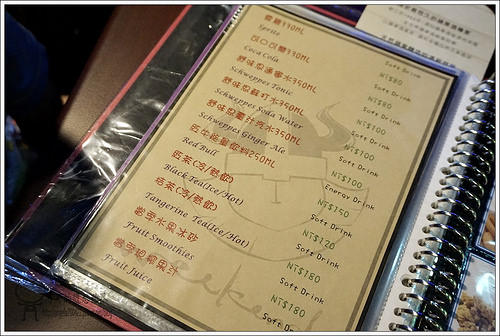 雪碧330ML
Sprite
Soft Drink
可口可樂330ML
NT$80
Coca Cola
Soft Drink
舒味思通寧水350ML
NT$80
Schweppes Tonic
Soft Drink
舒味思蘇打水350ML
NT$100
Schweppes Soda Water
Soft Drink
舒味思薑汁汽水350ML
NT$100
Schweppes Ginger Ale
Soft Drink
紅牛能量飲料250ML
NT$100
Red Bull
Energy Drink
紅茶(冷/熱飲)
NT$150
Black Tea(Ice/Hot)
Soft Drink
桔茶(冷/熱飲)
NT$120
Tangerine Tea(Ice/Hot)
Soft Drink
水果冰砂
NT$180
Fruit Smoothies
Soft Drink
果汁
NT$180
Fruit Juice
Soft Dr